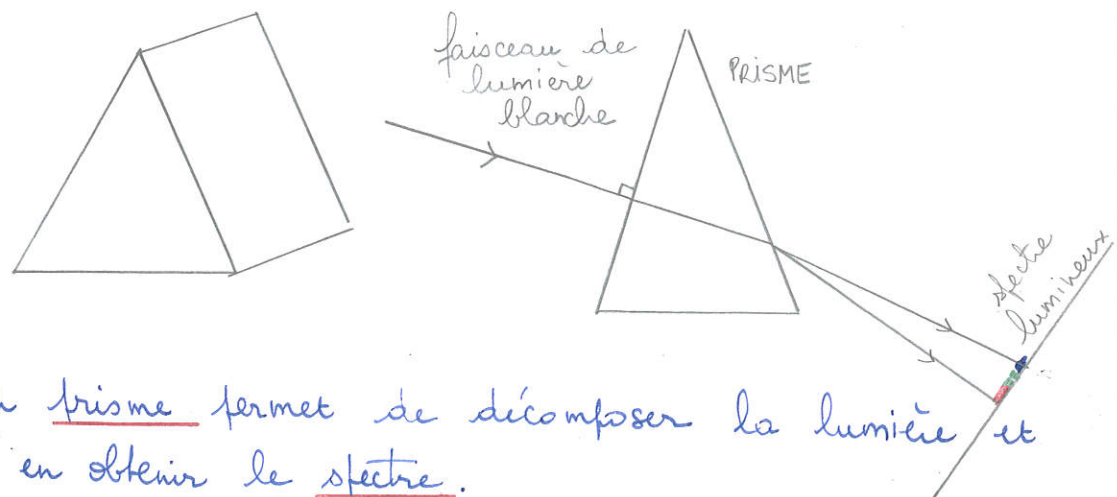 faisceau de
lumière
blanche
PRISME
spectre
lumineux
prisme permet de décomposer la lumière et
en obtenir le spectre.